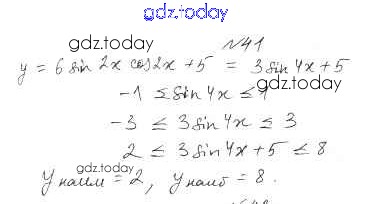 gdz.today
№41
gdz.today
y = 6 sin 2x cos 2x + 5 = 3 sin 4x + 5
gdz.today
-1 ≤ sin 4x ≤ 1
-3 ≤ 3 sin 4x ≤ 3
2 ≤ 3 sin 4x + 5 ≤ 8
gdz.today
y наим = 2, y наиб = 8.